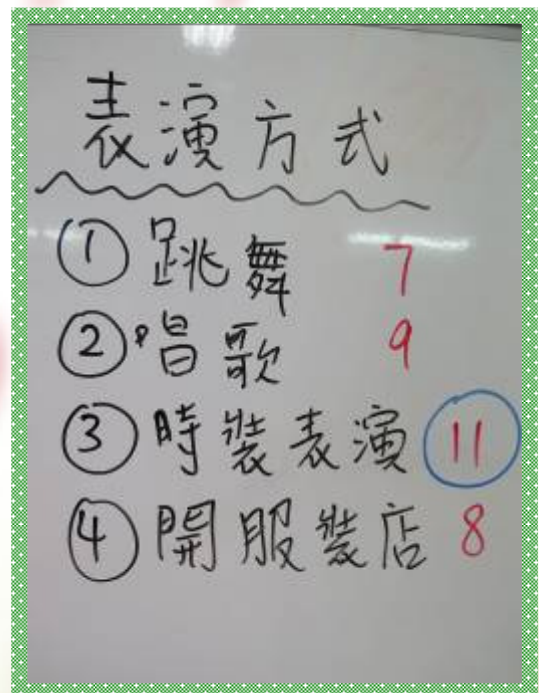 表演方式
① 跳舞 7
② 唱歌 9
③ 時裝表演 11
④ 開服裝店 8